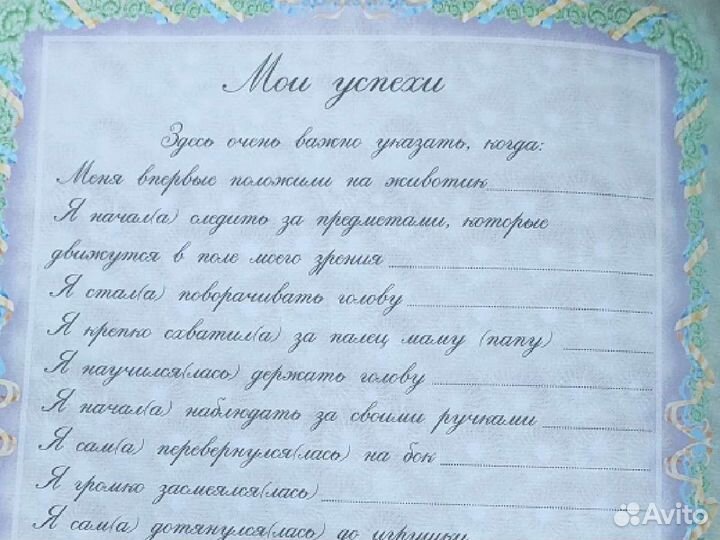 Мои успехи
Здесь очень важно указать, когда:
Меня впервые положили на животик
Я начал(а) следить за предметами, которые
движутся в поле моего зрения
Я стал(а) поворачивать голову
Я крепко схватил(а) за палец маму (папу)
Я научился(лась) держать голову
Я начал(а) наблюдать за своими ручками
Я сам(а) перевернулся(лась) на бок
Я громко засмеялся(лась)
Я сам(а) дотянулся(лась) до игрушки
Avito